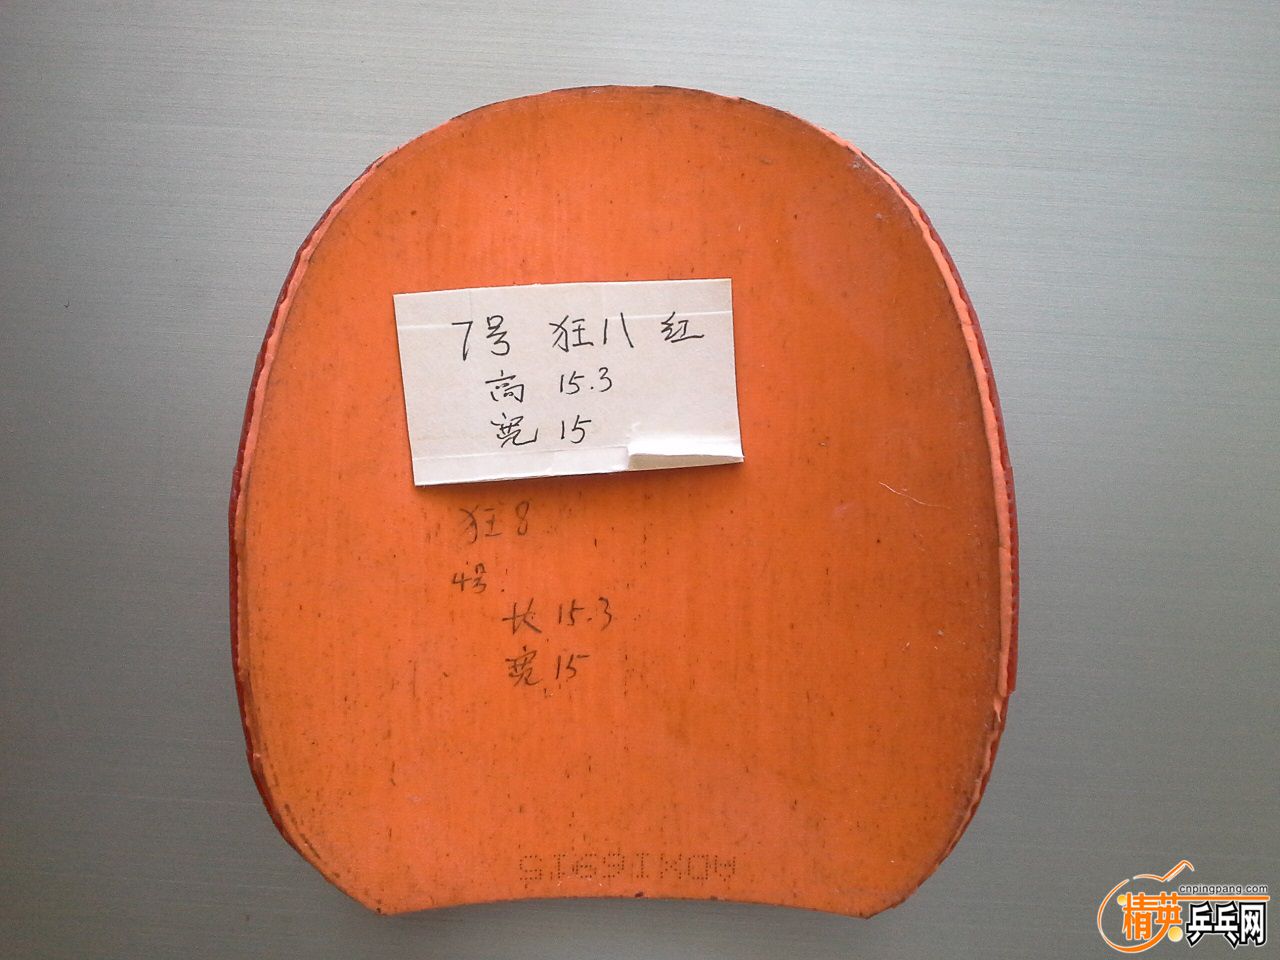 7号 狂八 红
高 15.3
宽 15
狂8
4号.
长 15.3
宽 15
AOXI6915
cnpingpang.com
精英乒乓网